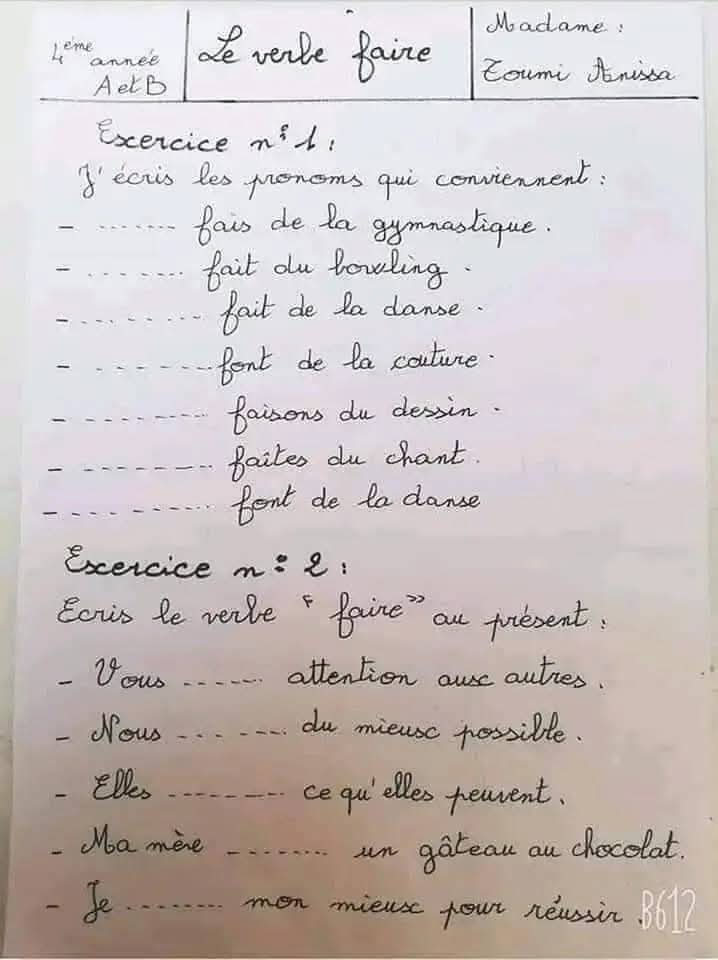 4ème année
A et B
Le verbe faire
Madame :
Toumi Anissa
Exercice n° 1 :
J'écris les pronoms qui conviennent :
- ....... fais de la gymnastique.
- ....... fait du bowling.
- ....... fait de la danse.
- ....... font de la couture.
- ....... faisons du dessin.
- ....... faîtes du chant.
- ....... font de la danse
Exercice n° 2 :
Ecris le verbe "faire" au présent :
- Vous ....... attention aux autres.
- Nous ....... du mieux possible.
- Elles ....... ce qu'elles peuvent.
- Ma mère ....... un gâteau au chocolat.
- Je ....... mon mieux pour réussir.
B612